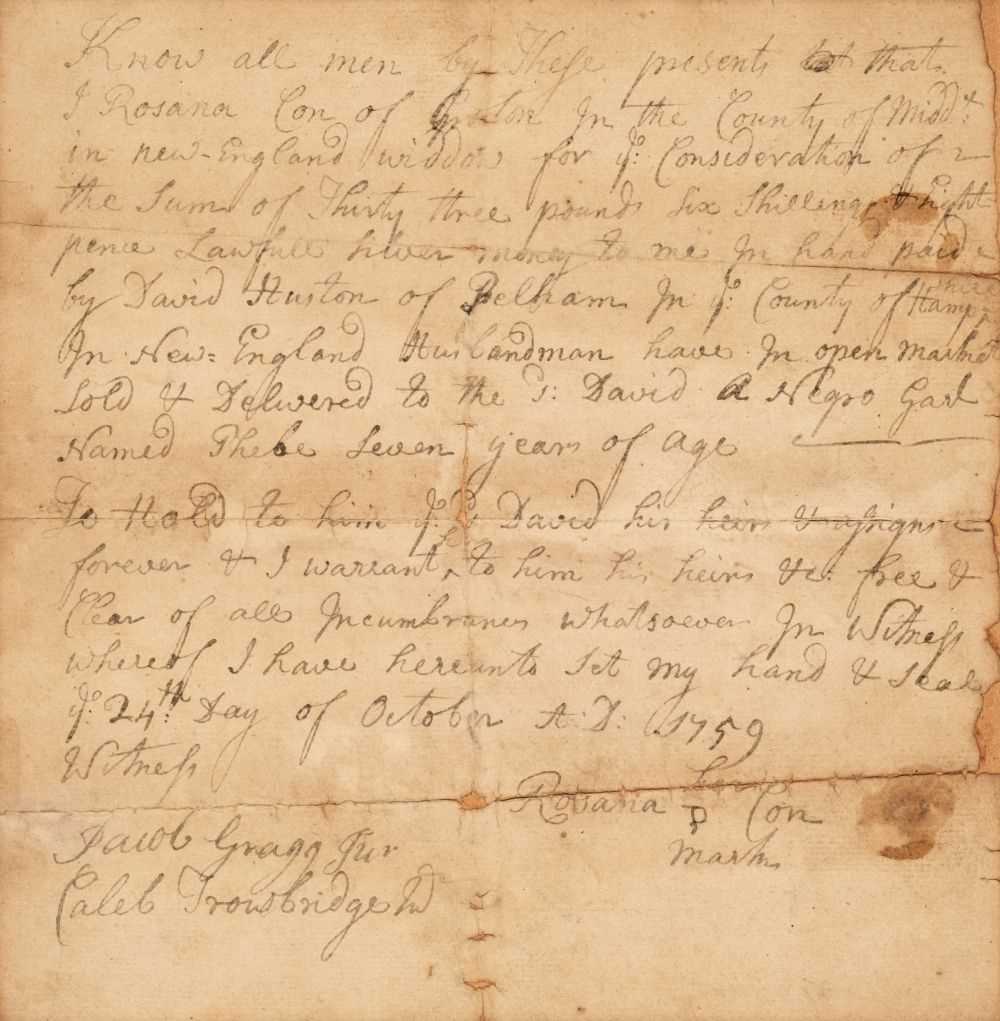 Know all men by These presents that
I Rosana Con of Groton In the County of Midd.x
in new-England widdow for ye: Consideration of
the Sum of Thirty three pounds Six Shillings & Eight
pence Lawfull Silver money to me In hand paid
by David Huston of Pelham In ye: County of Hampshire
In New=England Husbandman have In open market
Sold & Delivered to the sd: David a Negro Garl
Named Phebe Seven years of age
To Hold to him ye: sd David his heirs & assigns
forever & I warrant her to him his heirs &c: free &
Clear of all Incumbrances whatsoever In Witness
whereof I have hereunto Set my hand & Seal
ye: 24th: Day of October A:D: 1759
Witness
Rosana her Con
mark
Jacob Gragg Jur
Caleb Trowbridge